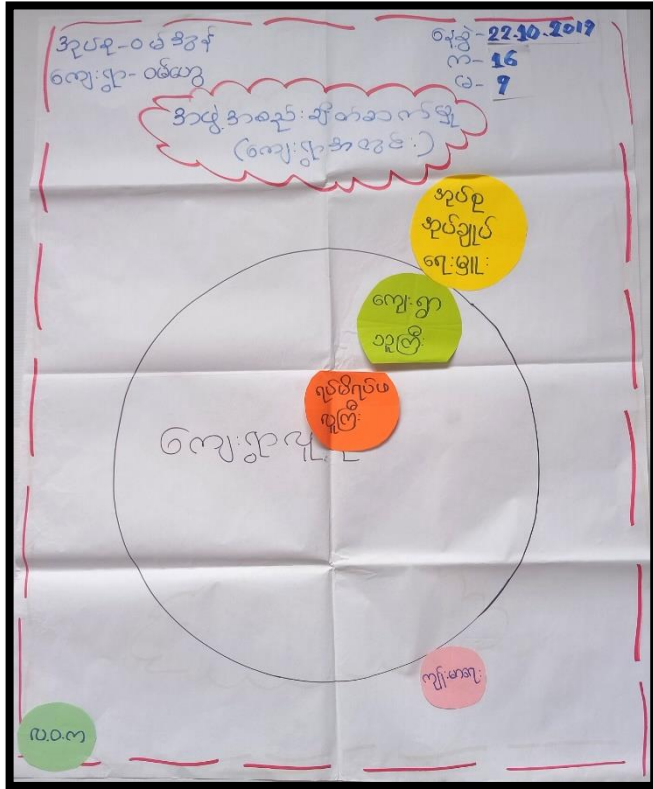 အုပ်စု-ဝမ်အွန်
ကျေးရွာ-ဝမ်ဟွေ
နေ့စွဲ-22.10.2019
ကျ-16
မ-9
အဖွဲ့အစည်းချိတ်ဆက်မှု
(ကျေးရွာအတွင်း)
အုပ်စု
အုပ်ချုပ်
ရေးမှူး
ကျေးရွာ
သူကြီး
ရပ်မိရပ်ဖ
လူကြီး
ကျေးရွာလူ
ကျန်းမာရေး
လ.ဝ.က